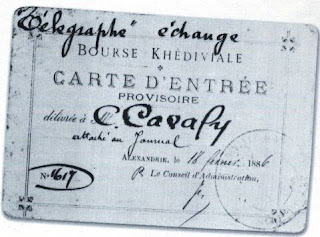 "Télégraphe" échange
BOURSE KHÉDIVIALE
CARTE D'ENTRÉE
PROVISOIRE
délivrée à M. C. Cavafy
attaché au Journal
ALEXANDRIE, le 18 février 1886
P. Le Conseil d'Administration,
N° 617